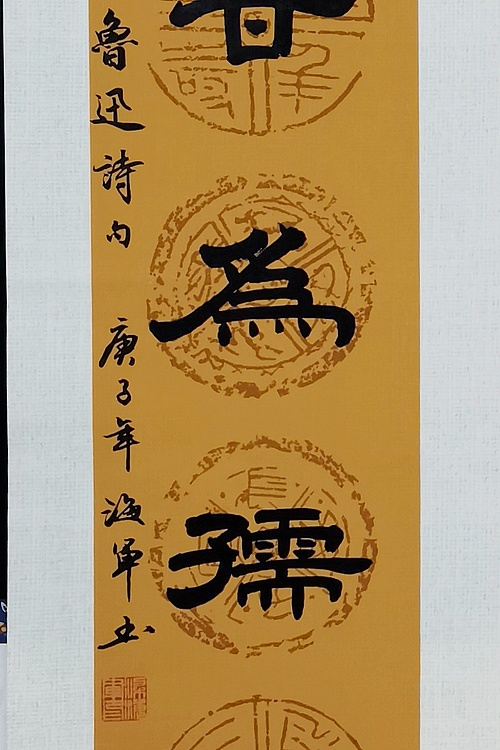 甘為孺
魯迅詩句 庚子年海軍书